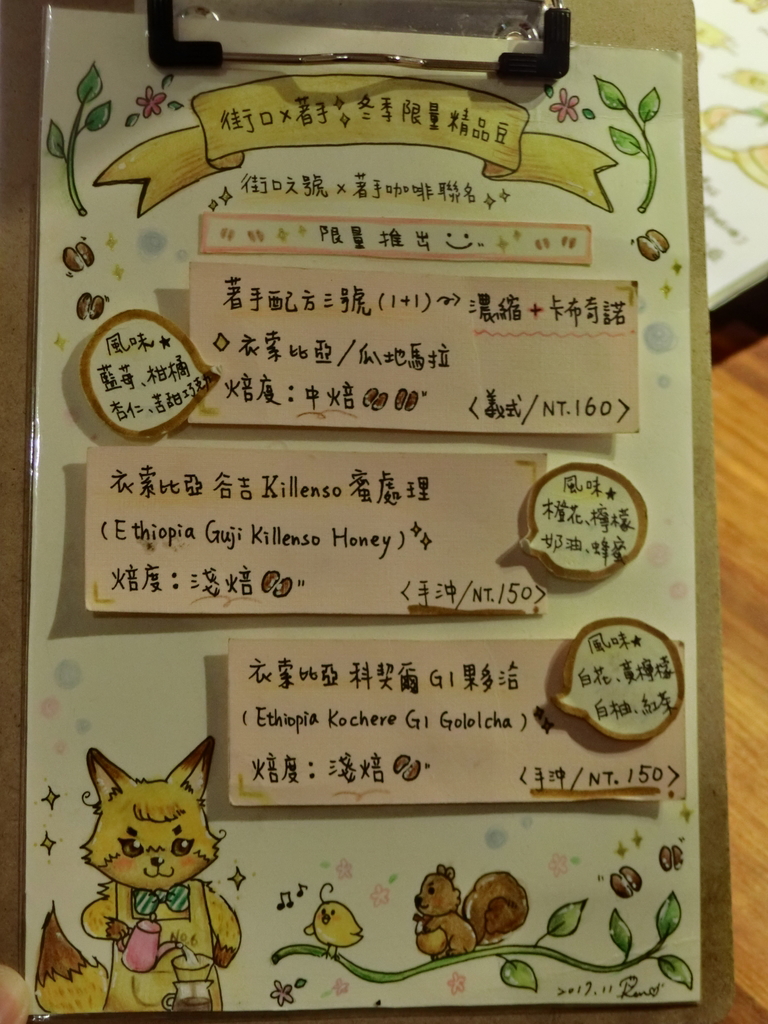 街口×著手 冬季限量精品豆
街口六號 × 著手咖啡聯名
限量推出
著手配方三號 (1+1) 濃縮+卡布奇諾
衣索比亞/瓜地馬拉
焙度：中焙
〈義式/NT.160〉
風味★
藍莓、柑橘
杏仁、苦甜巧克力
衣索比亞 谷吉 Killenso 蜜處理
(Ethiopia Guji Killenso Honey)
焙度：淺焙
〈手沖/NT.150〉
風味★
橙花、檸檬
奶油、蜂蜜
衣索比亞 科契爾 G1 果多洽
(Ethiopia Kochere G1 Gololcha)
焙度：淺焙
〈手沖/NT.150〉
風味★
白花、黃檸檬
白柚、紅茶
No.6
2017.11